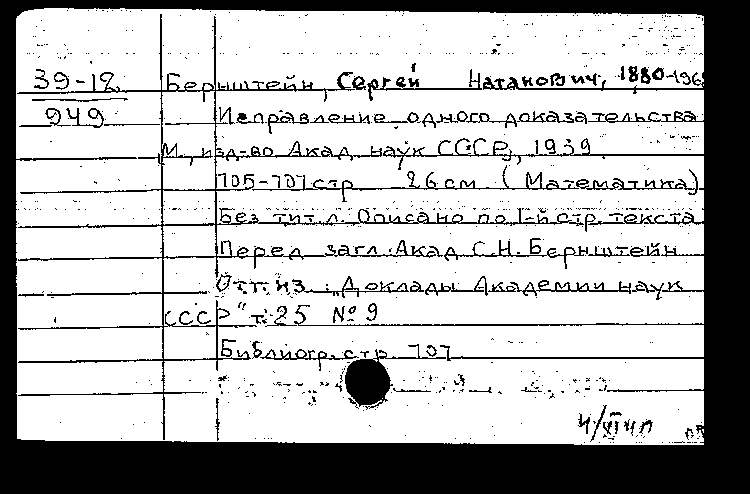 39-12 Бернштейн, Сергей Натанович, 1880-1968
949 Исправление одного доказательства
М., изд-во Акад. наук СССР, 1939.
705-707 стр 26 см (Математика)
Без тит. л. Описано по 1-й стр. текста
Перед загл. Акад С. Н. Бернштейн
Отт. из: „Доклады Академии наук
СССР" т. 25 № 9
Библиогр. стр. 707